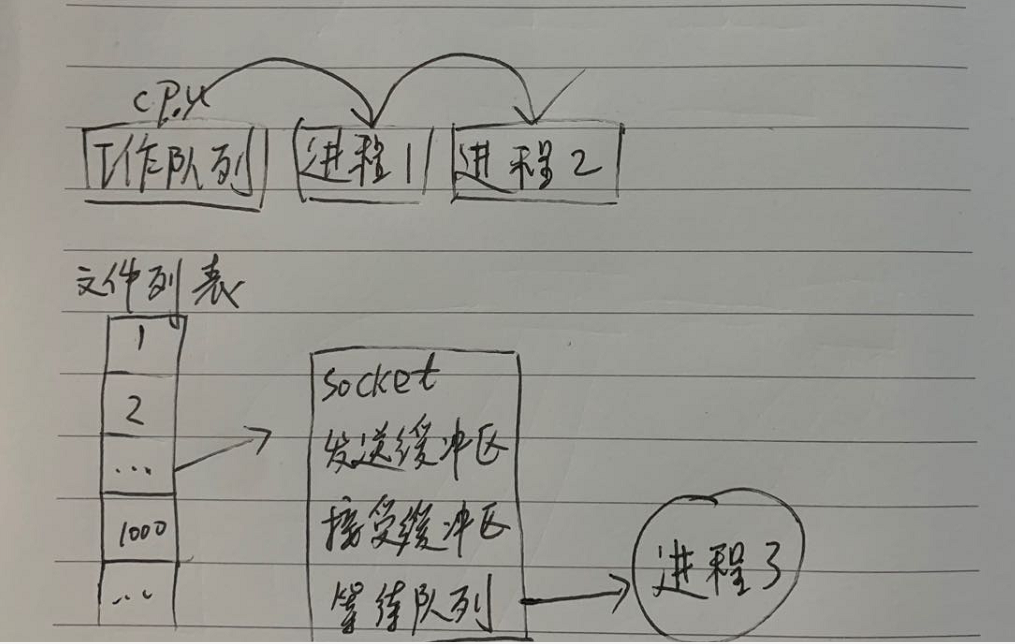 CPU
工作队列 进程1 进程2
文件列表
1
2
...
1000
...
socket
发送缓冲区
接受缓冲区
等待队列
进程3